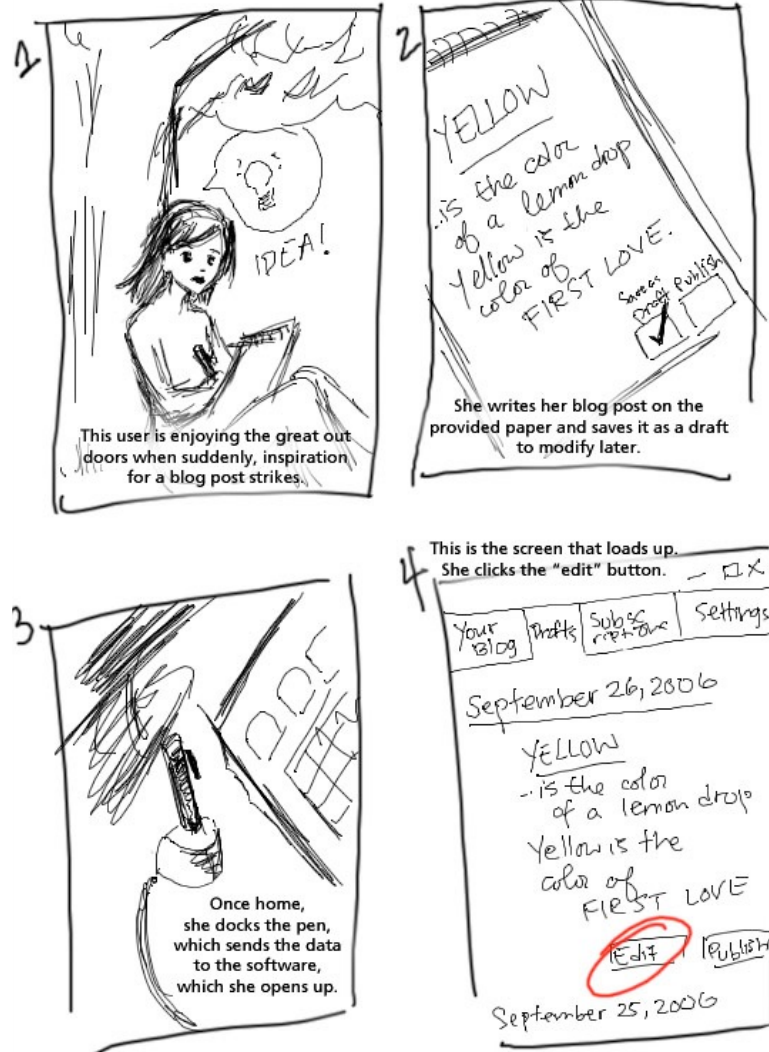 1
IDEA!
This user is enjoying the great out
doors when suddenly, inspiration
for a blog post strikes.
2
YELLOW
...is the color
of a lemon drop
Yellow is the
color of
FIRST LOVE.
Save as
Draft
Publish
She writes her blog post on the
provided paper and saves it as a draft
to modify later.
3
Once home,
she docks the pen,
which sends the data
to the software,
which she opens up.
4
This is the screen that loads up.
She clicks the “edit” button.
Your
Blog
Drafts
Subsc
riptions
Settings
September 26, 2006
YELLOW
...is the color
of a lemon drop
Yellow is the
color of
FIRST LOVE
Edit
Publish
September 25, 2006